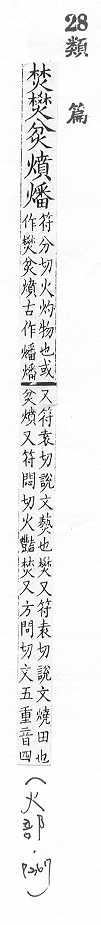 28 類篇
焚燓炃燌燔
符分切火灼物也或
作燓炃燌古作燔燔
又符袁切說文爇也燓又符袁切說文燒田也
炃燌又符悶切火豔焚又方問切文五重音四
(火部·p367)